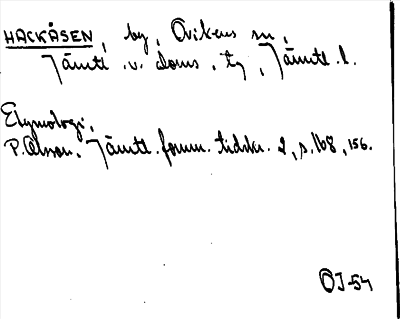 HACKÅSEN, by, Ovikens sn,
Jämtl. v. doms. tg, Jämtl. l.
Etymologi,
P. Olsson. Jämtl. fornm. tidskr. 2, s. 168, 156.
OJ-54